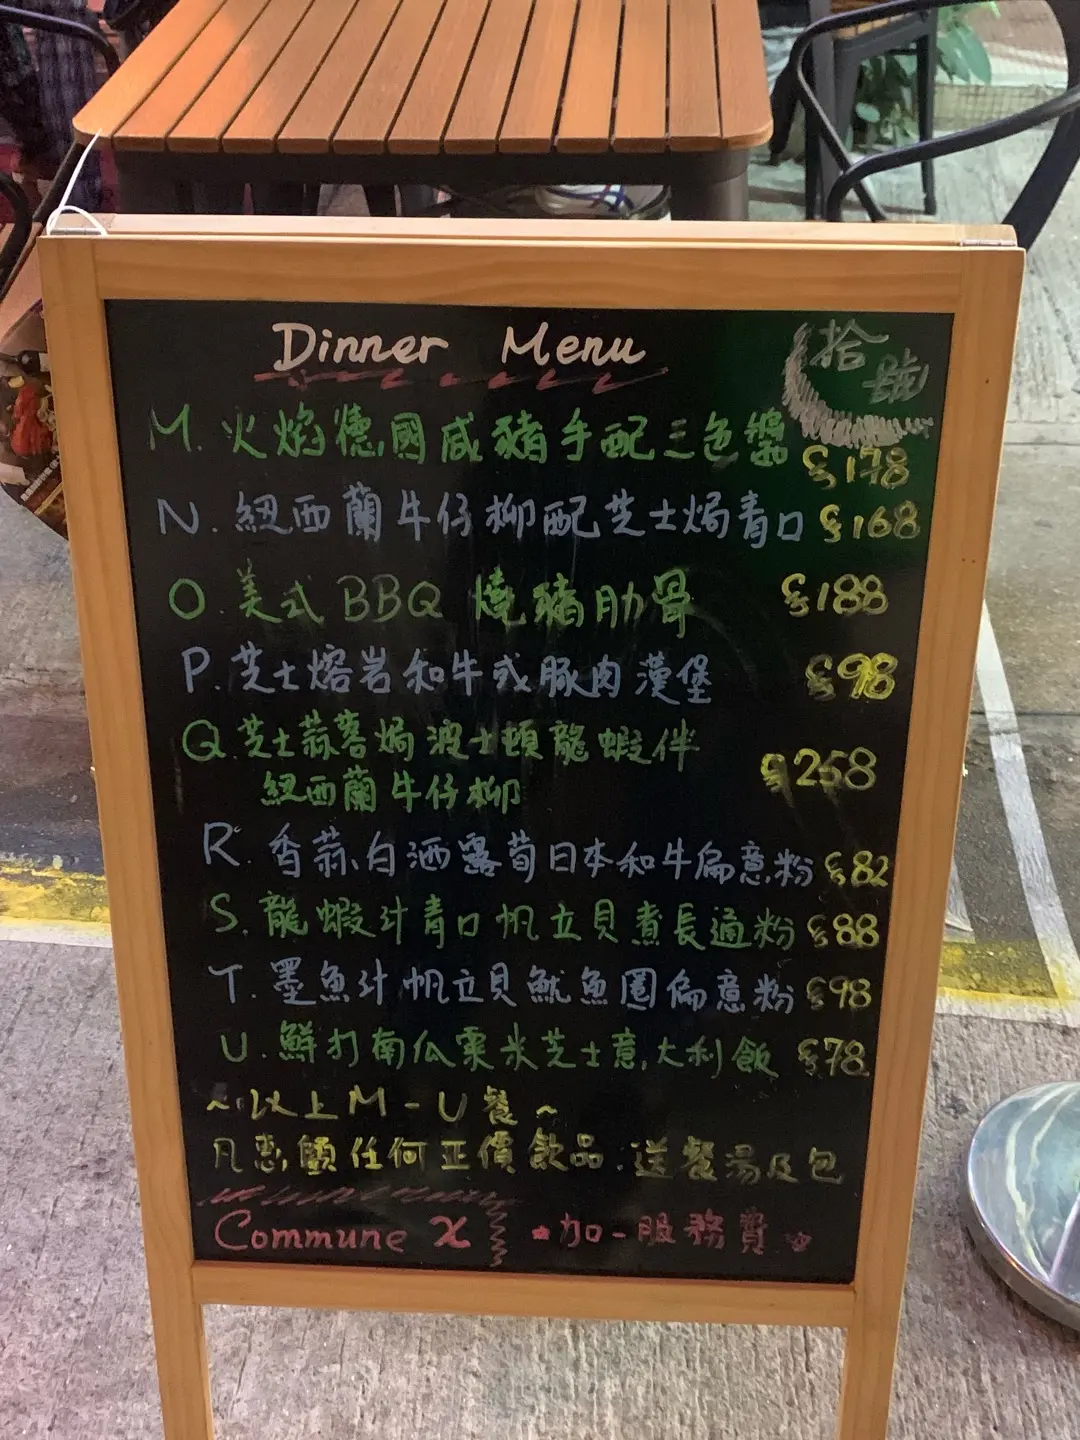 Dinner Menu
拾號
M. 火焰德國咸豬手配三色醬 $178
N. 紐西蘭牛仔柳配芝士焗青口 $168
O. 美式BBQ燒豬肋骨 $188
P. 芝士熔岩和牛或豚肉漢堡 $98
Q. 芝士蒜蓉焗波士頓龍蝦伴
紐西蘭牛仔柳 $258
R. 香蒜白酒露荀日本和牛扁意粉 $82
S. 龍蝦汁青口帆立貝煮長通粉 $88
T. 墨魚汁帆立貝魷魚圈扁意粉 $98
U. 鮮打南瓜粟米芝士意大利飯 $78
~以上M-U餐~
凡惠顧任何正價飲品.送餐湯及包
Commune X *加一服務費*